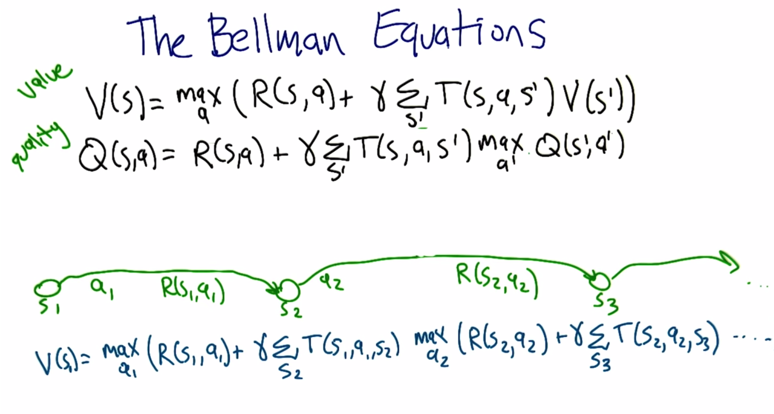 The Bellman Equations
value V(s) = max_a (R(s,a) + γ Σ_s' T(s,a,s') V(s'))
quality Q(s,a) = R(s,a) + γ Σ_s' T(s,a,s') max_a' Q(s',a')
s₁ a₁ R(s₁,a₁) s₂ a₂ R(s₂,a₂) s₃ ...
V(s₁) = max_a₁ (R(s₁,a₁) + γ Σ_s₂ T(s₁,a₁,s₂) max_a₂ (R(s₂,a₂) + γ Σ_s₃ T(s₂,a₂,s₃) ....